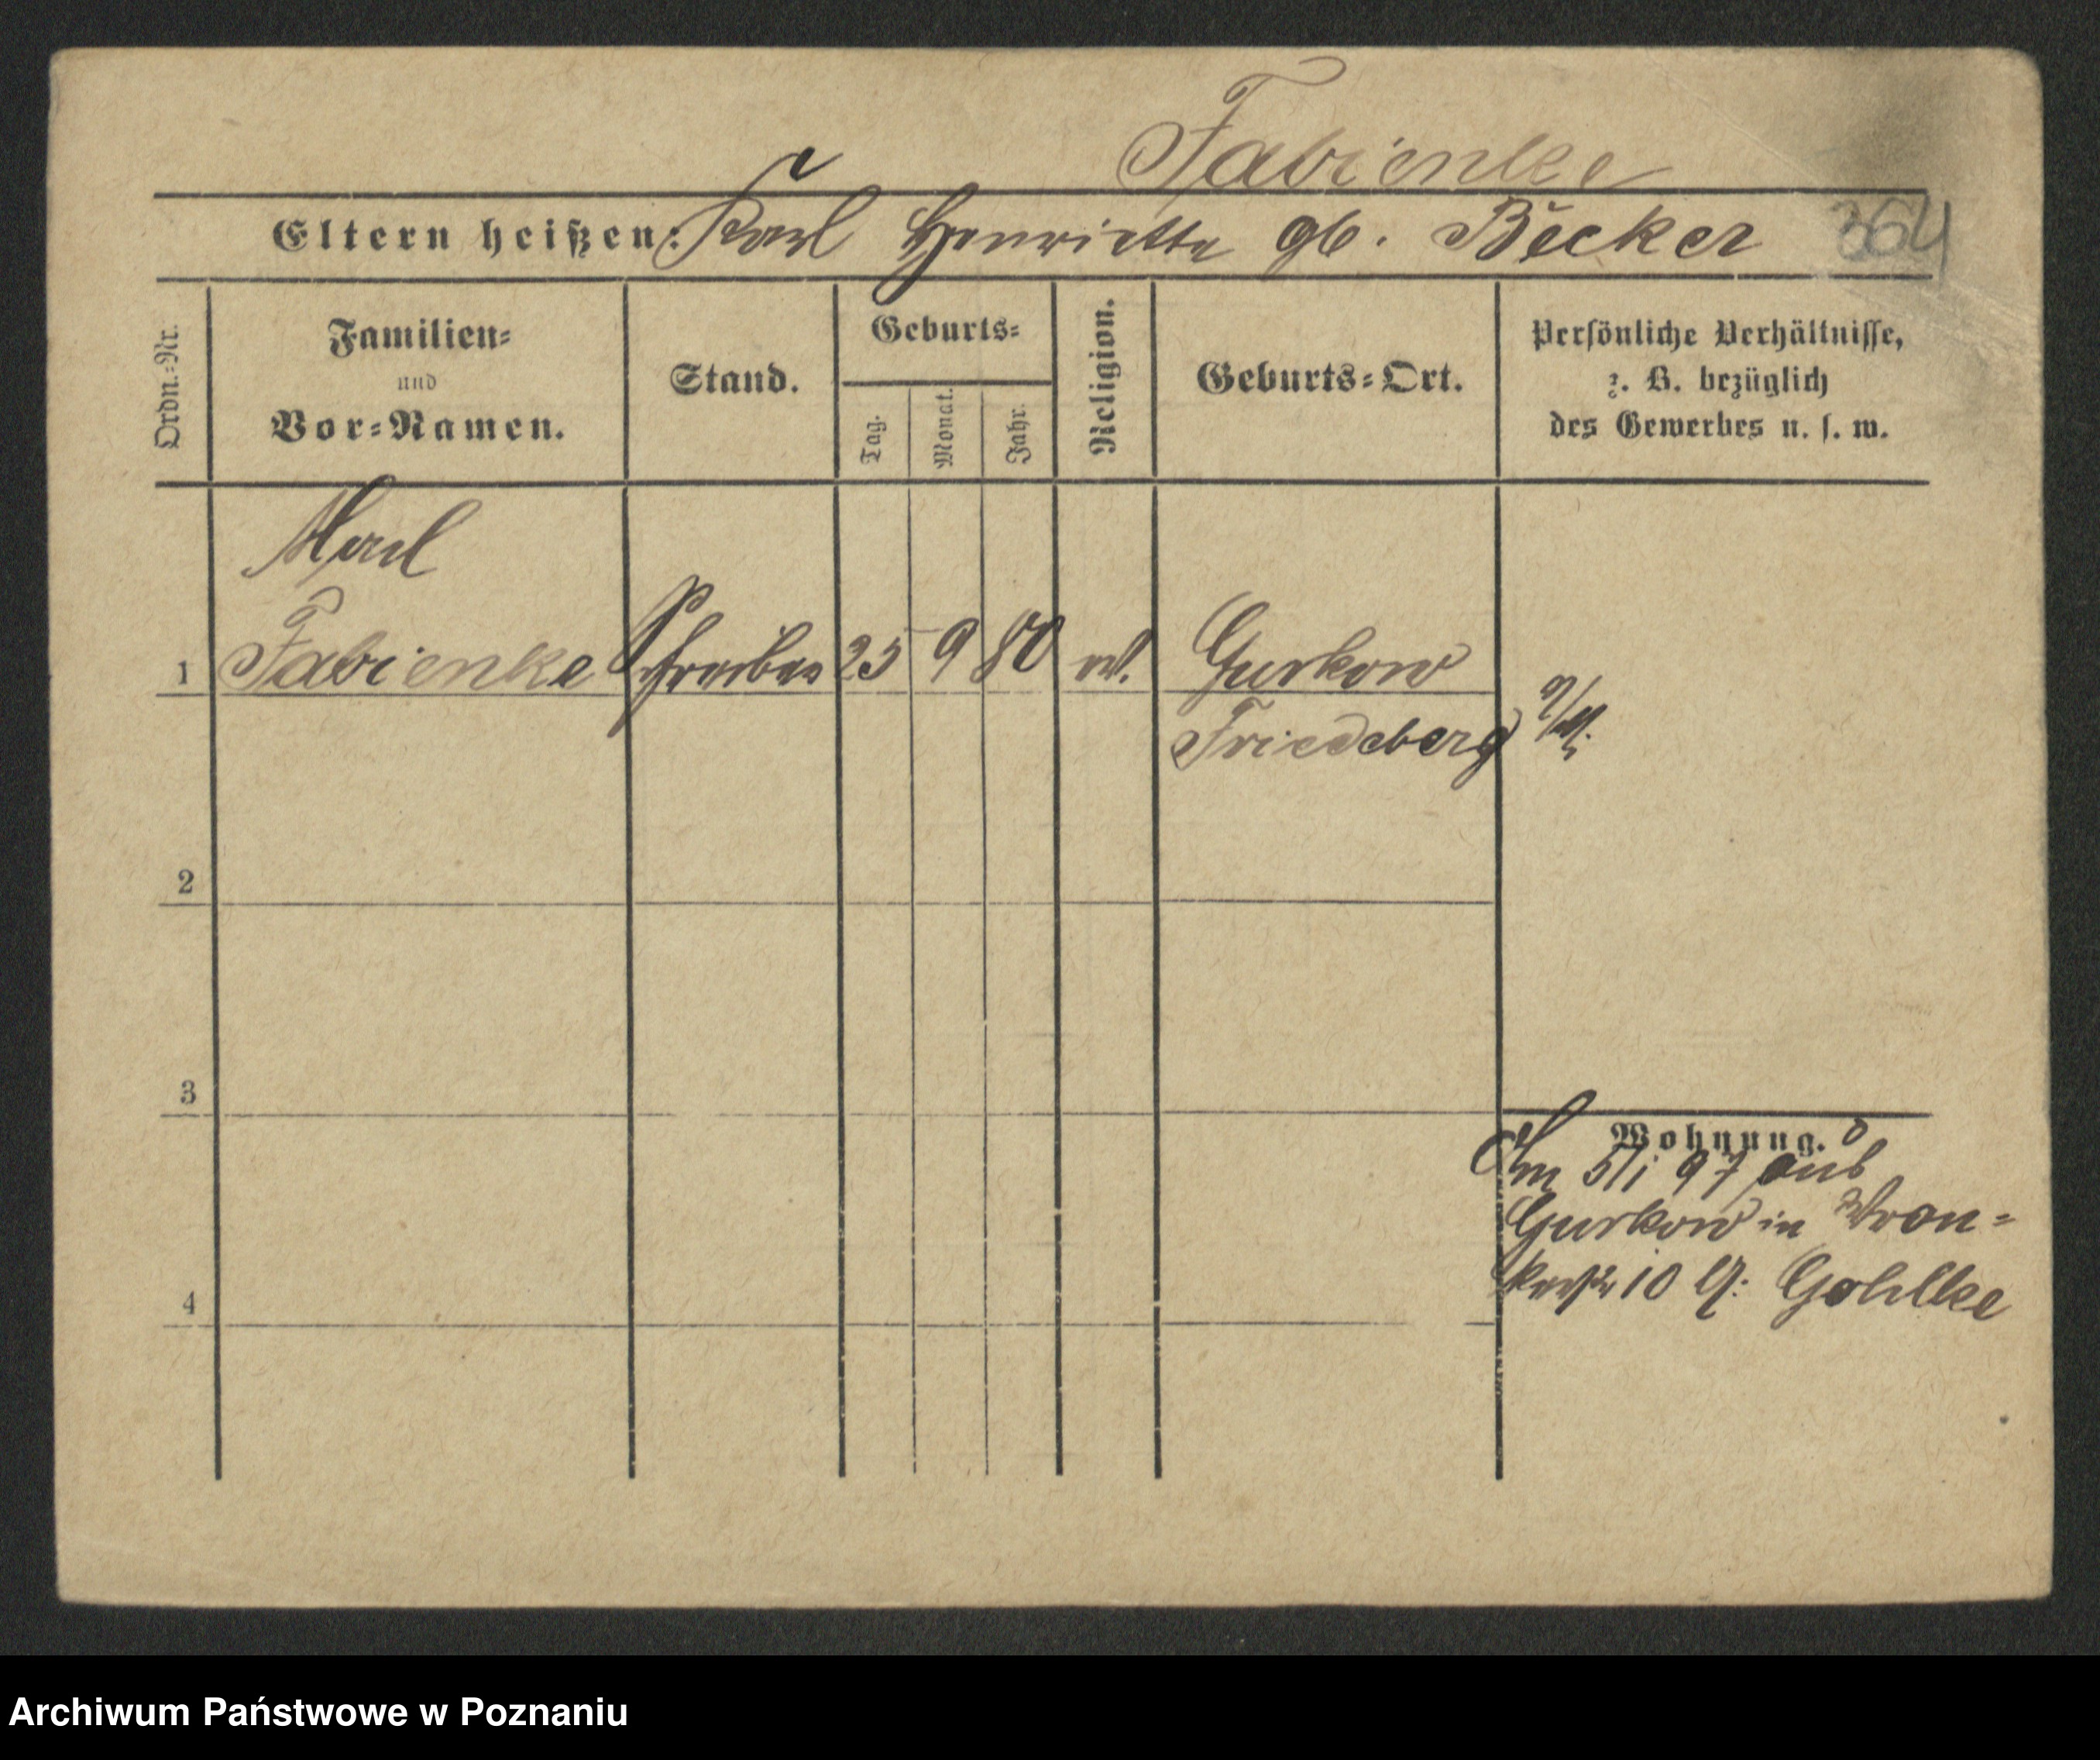 Fabienke
Eltern heißen: Karl Henriette gb. Becker 364
Ordn.-Nr.
Familien-
und
Vor-Namen.
Stand.
Geburts-
Tag.
Monat.
Jahr.
Religion.
Geburts-Ort.
Persönliche Verhältnisse,
z. B. bezüglich
des Gewerbes u. s. w.
1
Fabienke Schreiber 25 9 80 ev. Gurkow
Friedeberg
2
3
4
Wohnung.
Am 5/1 97 aus
Gurkow in Wron-
kerstr 10 b: Gohlke
Archiwum Państwowe w Poznaniu